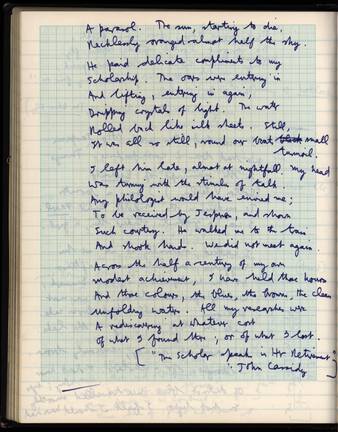 A parasol. The sun, starting to die,
Recklessly oranged almost half the sky.
He paid delicate compliments to my
Scholarship. The oars were entering in
And lifting, entering in again,
Dripping crystals of light. The water
Rolled back like silk sheets. Still,
It was all so still, round our boat's small
turmoil.
I left him late; almost at nightfall, my head
Was turning with the stimulus of talk.
Any philologist would have envied me;
To be received by Jespersen, and shown
Such courtesy. He walked me to the train
And shook hands. We did not meet again.
Across the half a century of my own
modest achievement, I have held those hours
And those colours, the blues, the browns, the clean
unfolding waters. All my researches were
A rediscovering at whatever cost
of what I found there; or of what I lost.
["The Scholar Speaks in His Retirement"
John Cassidy]